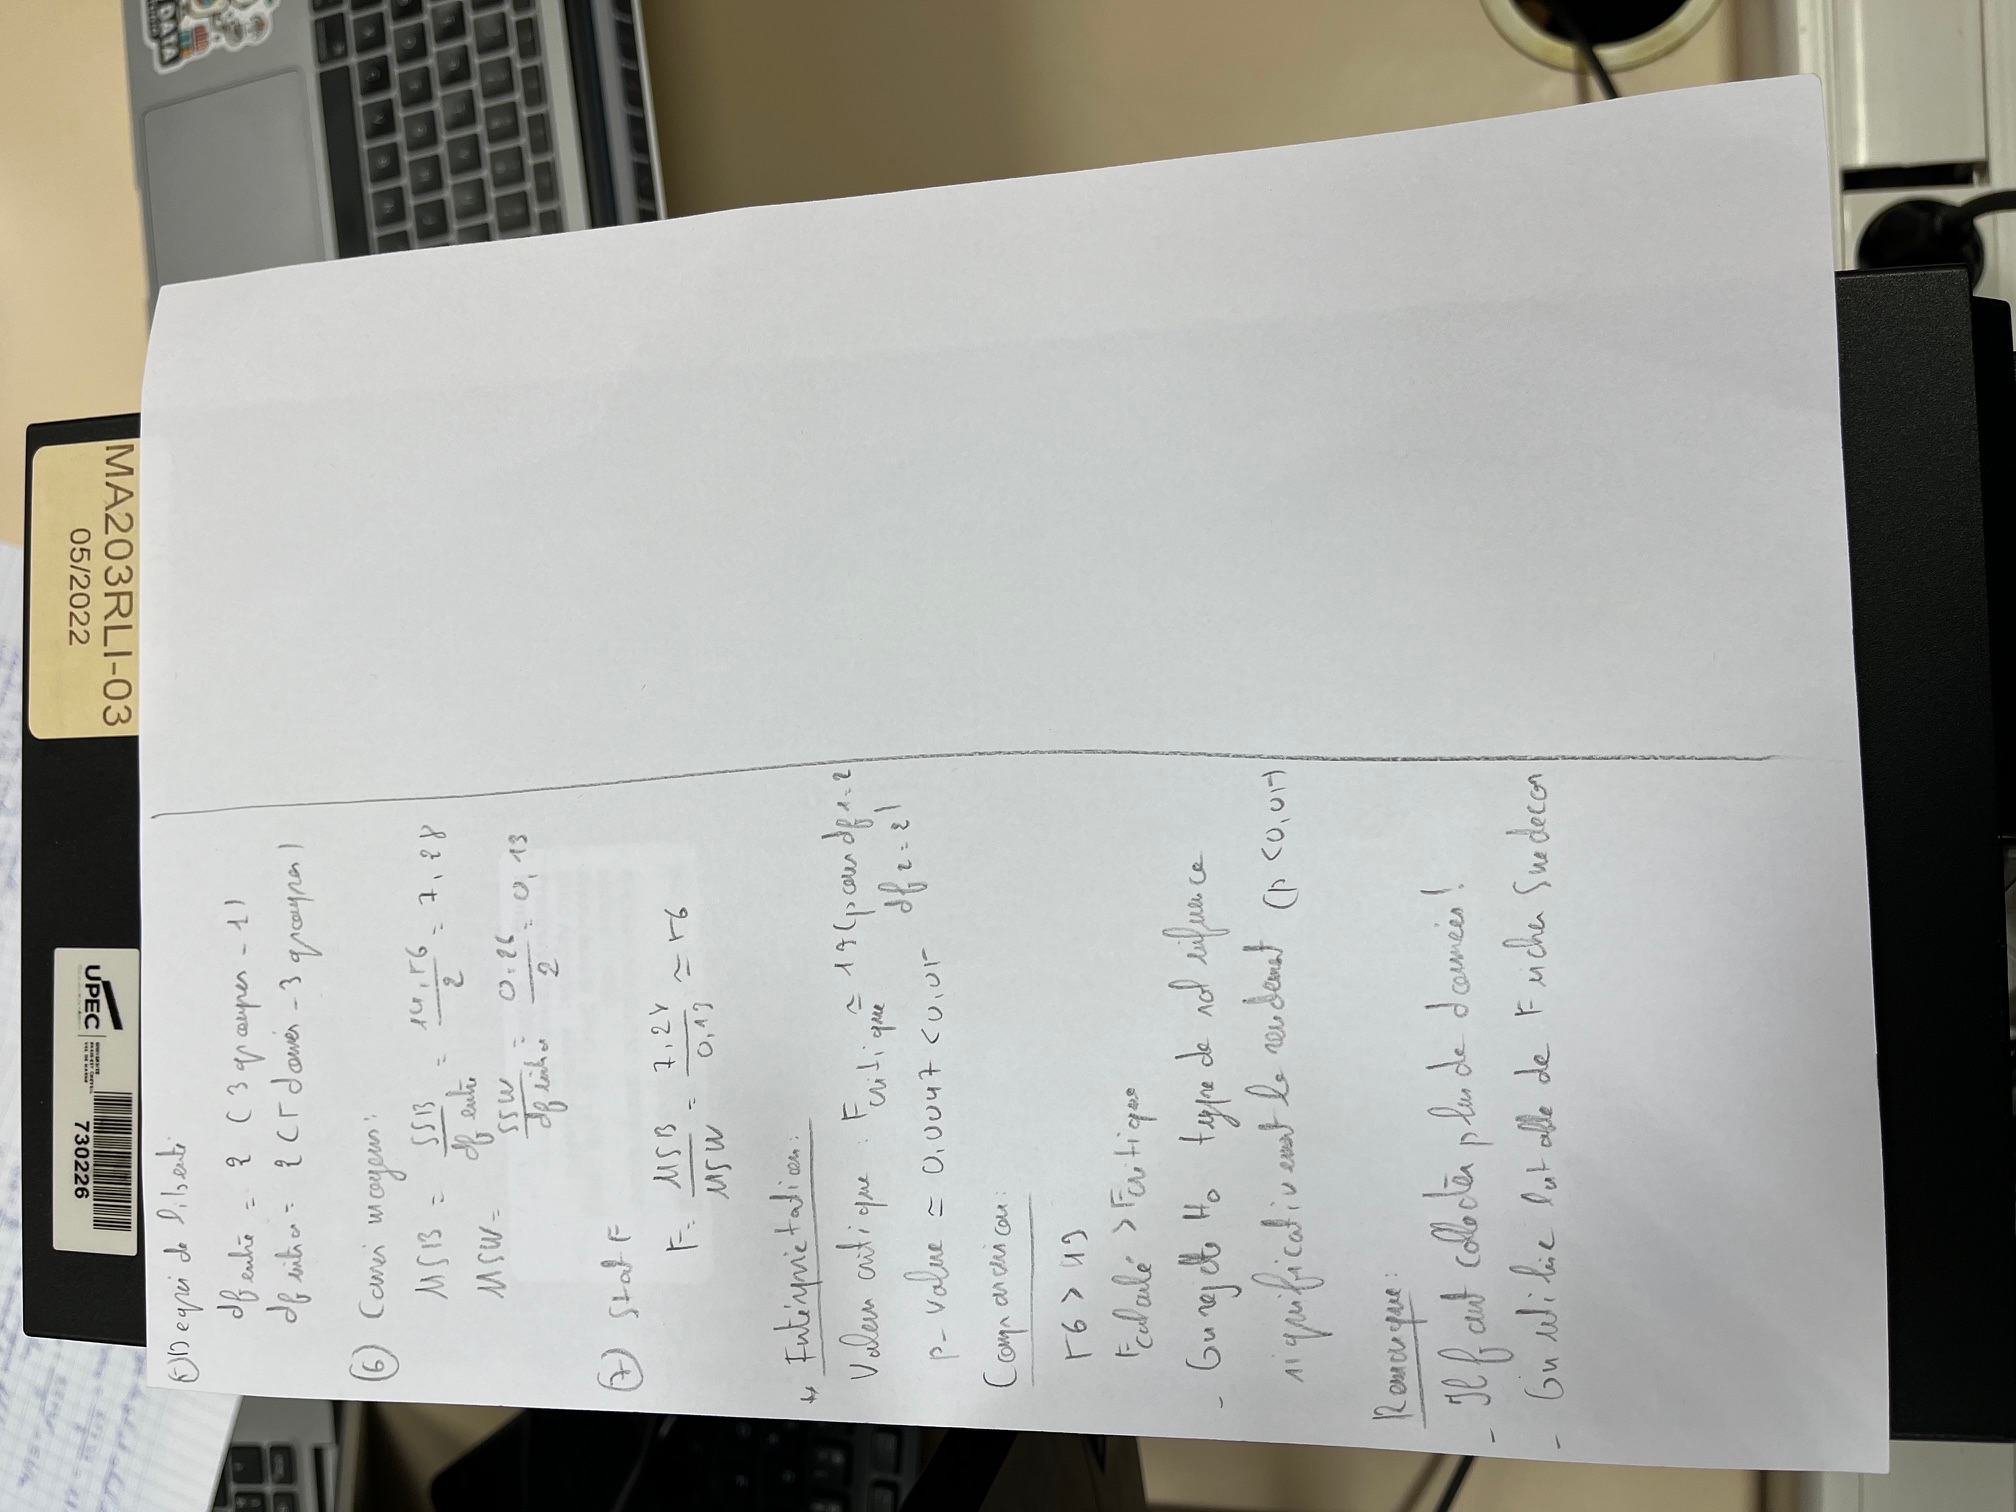 730226
UPEC
05/2022
MA203RLI-03
DATA
⑤ Degré de liberté
df entre = 2 (3 groupes - 1)
df intra = 2 (5 données - 3 groupes)
⑥ Carrés moyens:
MSB = SSB / df entre = 14,56 / 2 = 7,28
MSW = SSW / df intra = 0.26 / 2 = 0,13
⑦ Stat F
F = MSB / MSW = 7,28 / 0,13 ≃ 56
* Intérprétation:
Valeur critique : F critique ≃ 19 (pour df1 = 2
df2 = 2)
p-value ≃ 0,0047 < 0,05
Comparaison:
56 > 19
F calculé > F critique
- On rejette H0 type de sol influence
significativement le rendement (p < 0,05)
Remarque:
- Il faut collecter plus de données!
- On utilise la table de Fischer Snedecor